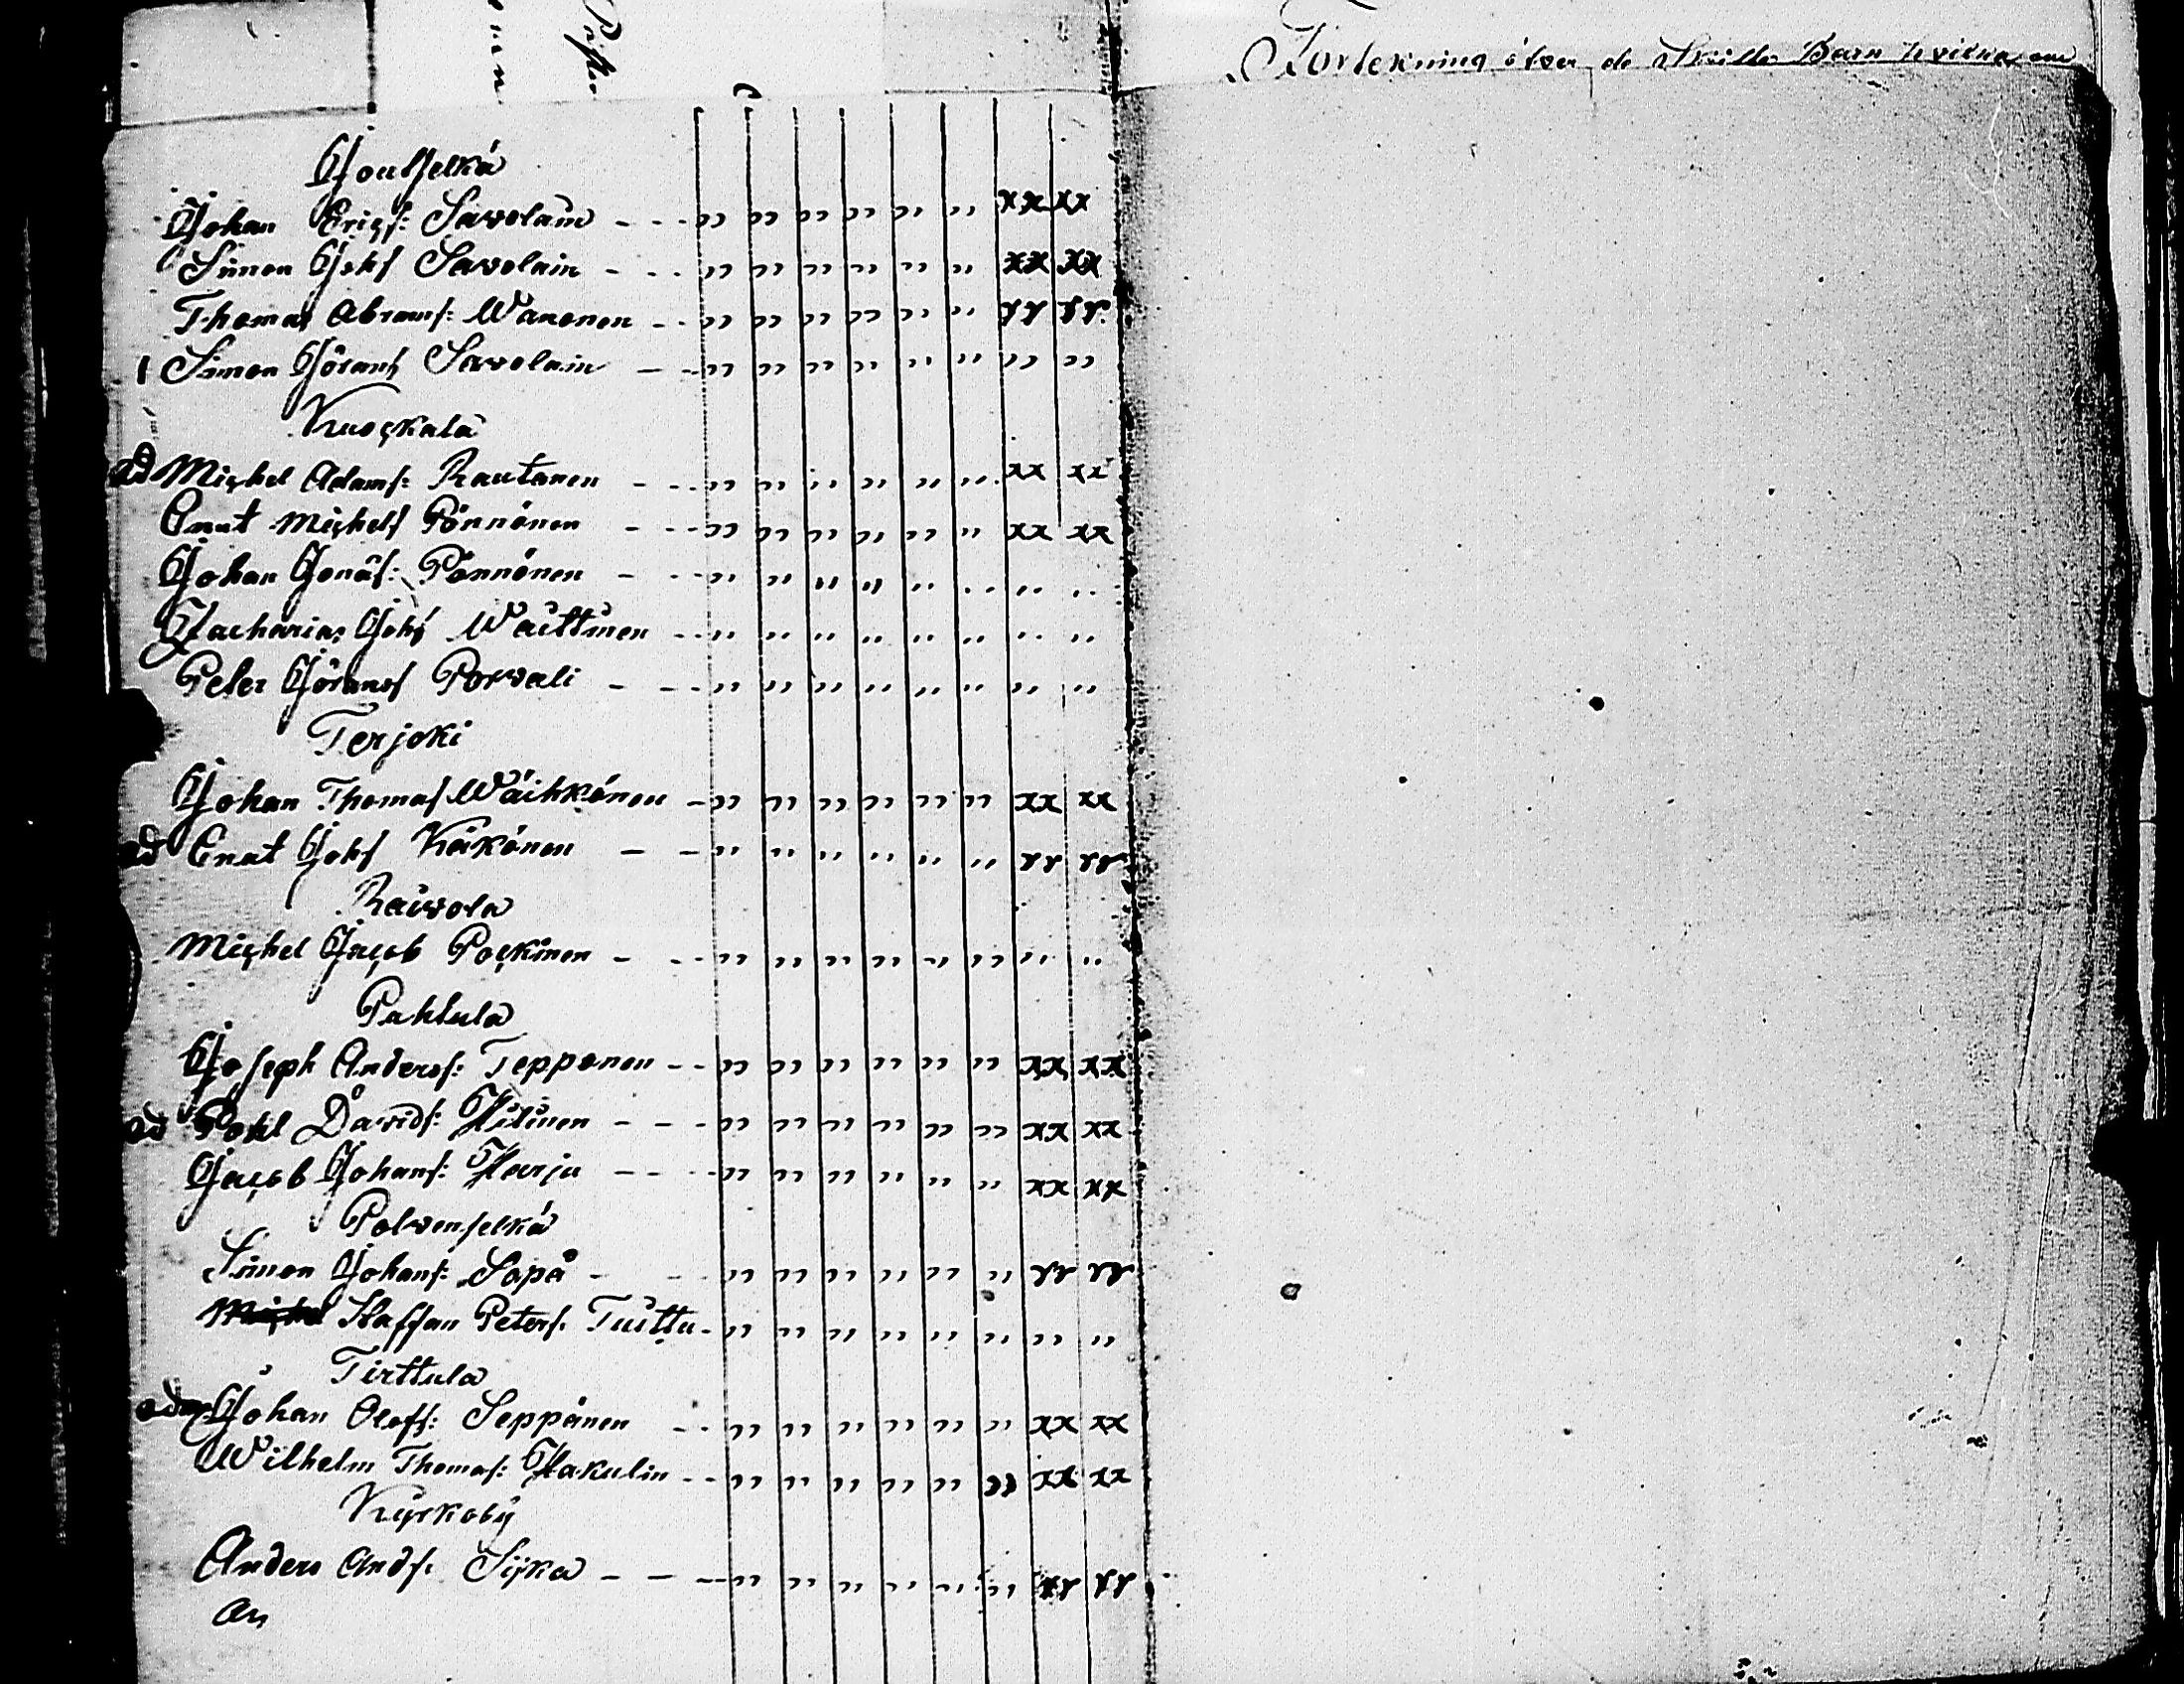 Förtekning öfver de Barn hvilka
Joutselkä
Johan Erigs: Savolain - - - " " " " " " xx xx
Simon Johs Savolain - - - " " " " " " xx xx
Thomas Abrams: Wanonen - - " " " " " " xx xx
1 Simon Görans Savolain - - " " " " " " " "
Kuockala
ad Michel Adams: Rautanen - - - " " " " " " xx xx
Cnut Michels Pönnönen - - - " " " " " " xx xx
Johan Jonäs: Pönnönen - - - " " " " " " " "
Zacharias Johs Waittinen - - " " " " " " " "
Peter Görans Porvali - - - " " " " " " " "
Terjoki
Johan Thomas Wäihkönen - " " " " " " xx xx
ad Cnut Johs Käkönen - - " " " " " " xx xx
Raivola
Michel Jacob Pockinen - - - " " " " " " " "
Pahtula
Joseph Anders: Tepponen - - " " " " " " xx xx
ad Pohl Davids: Hitinen - - - " " " " " " xx xx
Jacob Johans: Harju - - - " " " " " " xx xx
Polvenselkä
Simon Johans: Sopå - - - " " " " " " xx xx
Michel Staffan Peters: Tuittu - " " " " " " " "
Tirttula
Johan Olofs: Seppänen - - " " " " " " xx xx
Wilhelm Thomas: Hakulin - - " " " " " " xx xx
Kyrkoby
Anders Ands: Sijka - - - " " " " " " xx xx
An